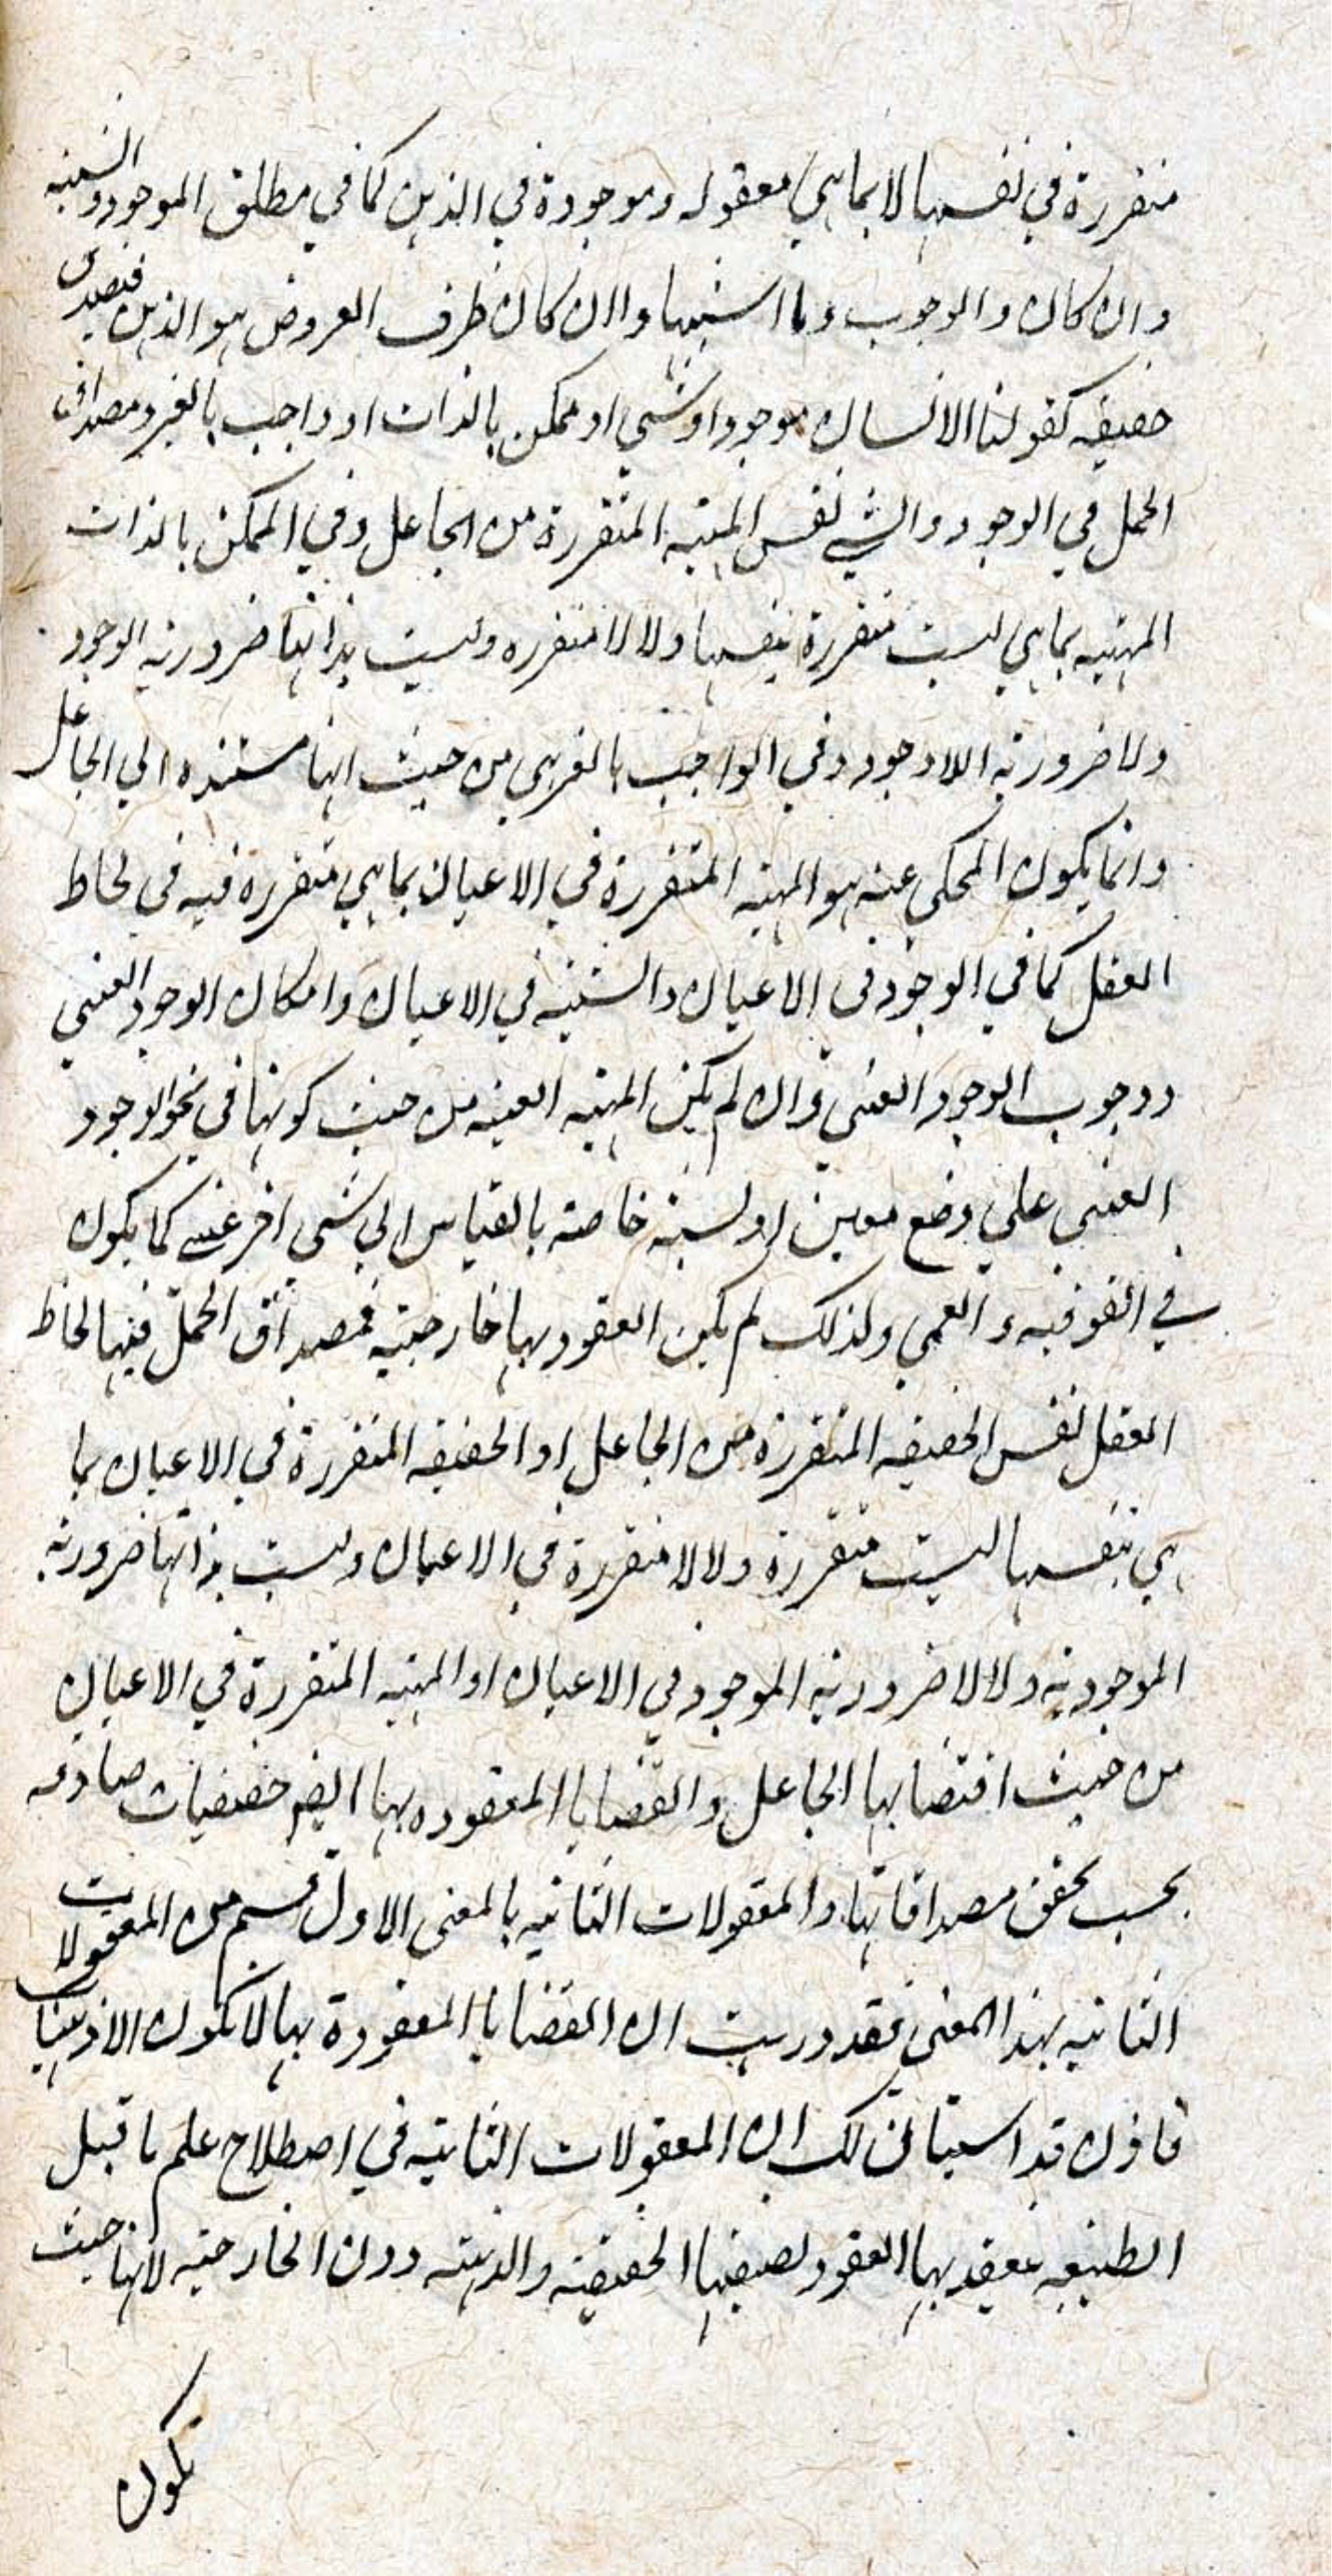 متقررة في نفسها لا بما هي معقوله وموجودة في الذهن كما في مطلق الموجود والشيئيه
وان كان والوجوب وما اشبهها وان كان ظرف العروض هو الذهن فتصدق
حقيقيه كقولنا الانسان موجود او شي او ممكن بالذات او واجب بالغير ومصداق
الحمل في الوجود والشي نفس المهيه المتقررة من الجاعل وفي الممكن بالذات
المهيه بما هي ليست متقررة بنفسها ولا لا متقرره وليست بذاتها ضرورية الوجود
ولا ضرورية اللاوجود وفي الواجب بالغير هي من حيث انها مستنده الي الجاعل
وانما يكون المحكي عنه هو المهيه المتقررة في الاعيان بما هي متقررة فيه في لحاظ
العقل كما في الوجود في الاعيان والشيئيه في الاعيان وامكان الوجود العيني
ووجوب الوجود العيني وان لم يكن المهيه العينيه من حيث كونها في نحو الوجود
العيني علي وضع معين او نسبة خاصة بالقياس الي شي اخر عيني كما يكون
في الفوقيه والعمي ولذلك لم يكن العقود بها خارجية فمصداق الحمل فيها لحاظ
العقل نفس الحقيقه المتقررة من الجاعل او الحقيقه المتقررة في الاعيان بما
هي بنفسها ليست متقررة ولا لا متقررة في الاعيان وليست بذاتها ضرورية
الموجودية ولا لا ضرورية الموجود في الاعيان او المهيه المتقررة في الاعيان
من حيث اقتضابها الجاعل والقضايا المعقوده بها ايضا حقيقيات صادقه
بحسب تحقق مصداقاتها والمعقولات الثانيه بالمعني الاول قسم من المعقولات
الثانيه بهذا المعني فقد دريت ان القضايا المعقودة بها لا تكون الا ذهنيات
فاذن قد استبان لك ان المعقولات الثانيه في اصطلاح علم ما قبل
الطبيعه يعقد بها العقود بصنفيها الحقيقية والذهنيه دون الخارجية لانها حيث
تكون